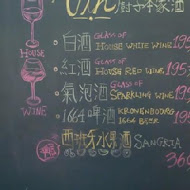 白酒 GLASS OF HOUSE WHITE WINE 195
HOUSE
紅酒 GLASS OF HOUSE RED WINE 195
氣泡酒 GLASS OF SPARKLING WINE 195
WINE
1664啤酒 KRONENBOURG 1664 BEER 195
西班牙水果酒 SANGRIA